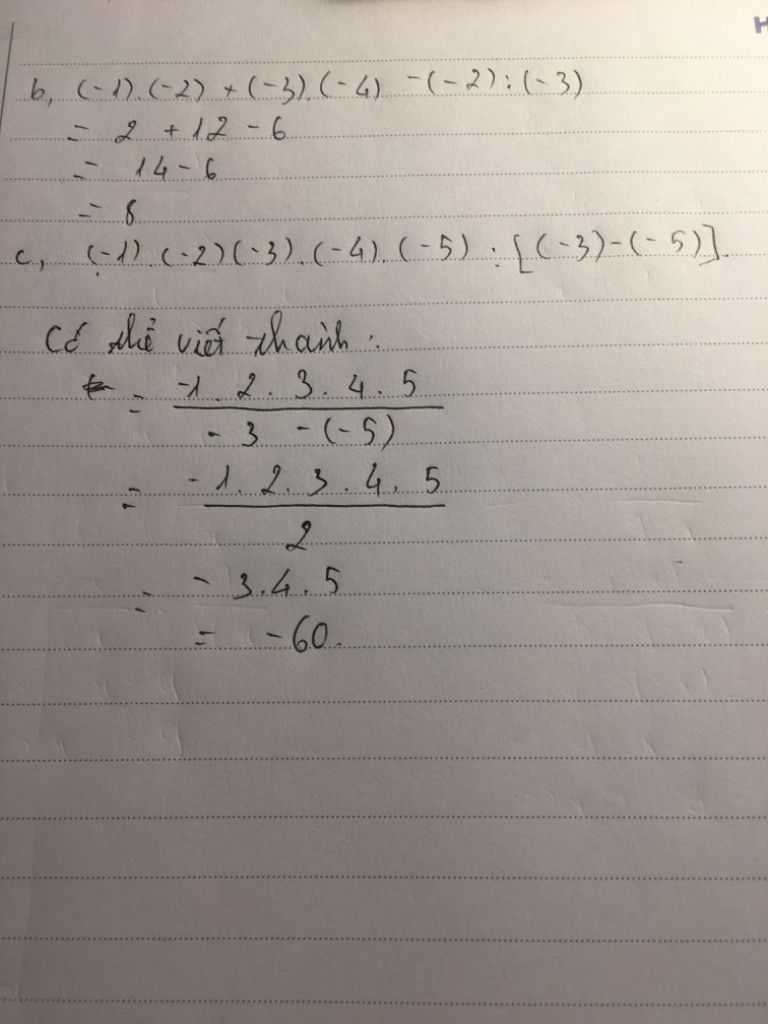 H
b, (-1).(-2) + (-3).(-4) -(-2):(-3)
= 2 + 12 - 6
= 14 - 6
= 8
c, (-1).(-2)(-3).(-4).(-5) : [(-3)-(-5)].
Có thể viết thành:
= -1. 2. 3. 4. 5
- 3 - (-5)
= -1. 2. 3. 4. 5
2
= - 3.4. 5
= -60.